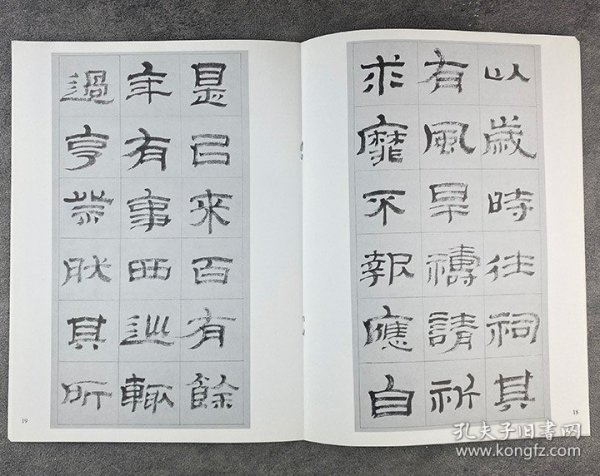 以歲時往祠其
有風旱禱請祈
求靡不報應自
是㠯來百有餘
年有事西巡輒
過亨祭肰其所
18
19
孔夫子旧书网
www.kongfz.com